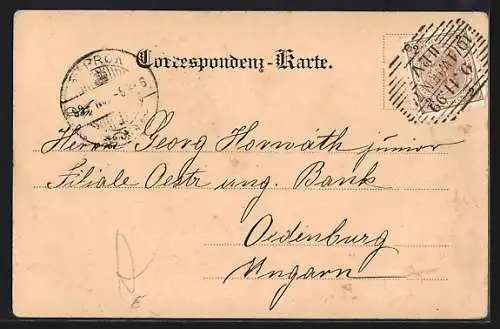 Correspondenz-Karte.
SOPRON
WIEN
9.11.99
Herrn Georg Horváth junior
Filiale Oestr ung. Bank
Oedenburg
Ungarn
E